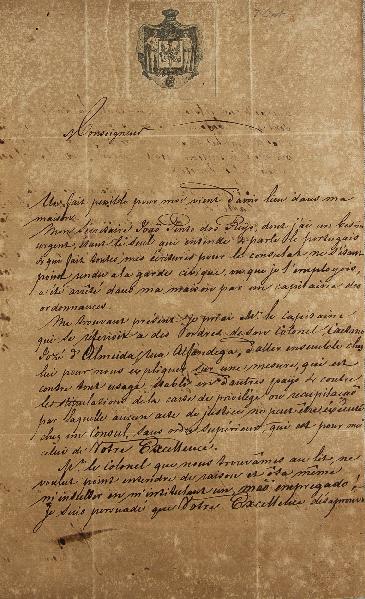 Monseigneur
Un fait pénible pour moi vient d'avoir lieu dans ma
maison.
Mon Secrétaire João Pinto dos Reys, dont j'ai un besoin
urgent, étant le seul qui entende & parle le portugais
& qui fait toutes mes écritures pour le consulat, ne s'étant
point rendu a la garde civique, vu que je l'employais,
a été arrêté dans ma maison par un capitaine des
ordonnances.
Me trouvant présent, je priai Mr. le capitaine
qui se référait a des ordres de son Colonel
José d'Almeida, rua Alfandega, d'aller ensemble chez
lui pour nous expliquer sur une mesure, qui est
contre tout usage établi en d'autres pays & contre
les stipulations de la carte de privilège ou capitulation
par laquelle aucun acte de justice ne peut être exécuté
chez un Consul, sans ordre supérieur, qui est pour moi
celui de Votre Excellence.
Mr. le colonel que nous trouvâmes au lit, ne
voulut point entendre de raison et osa même
m'insulter en m'intitulant un máo empregado.
Je suis persuadé que Votre Excellence désapprouve